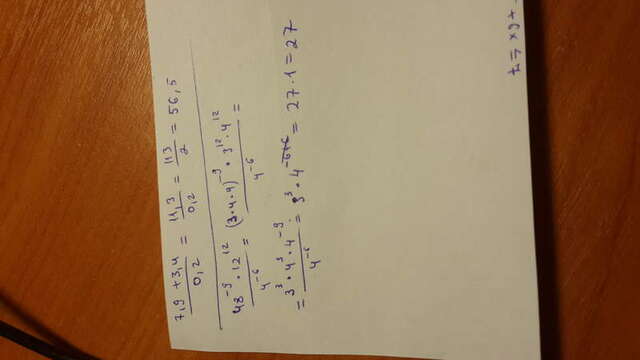 (7,9 + 3,4) / 0,2 = 11,3 / 0,2 = 113 / 2 = 56,5
(48^-9 · 12^12) / 4^-6 = ((3·4·4)^-9 · 3^12 · 4^12) / 4^-6 =
= (3^3 · 4^3 · 4^-9) / 4^-6 = 3^3 · 4^-6+6 = 27·1 = 27